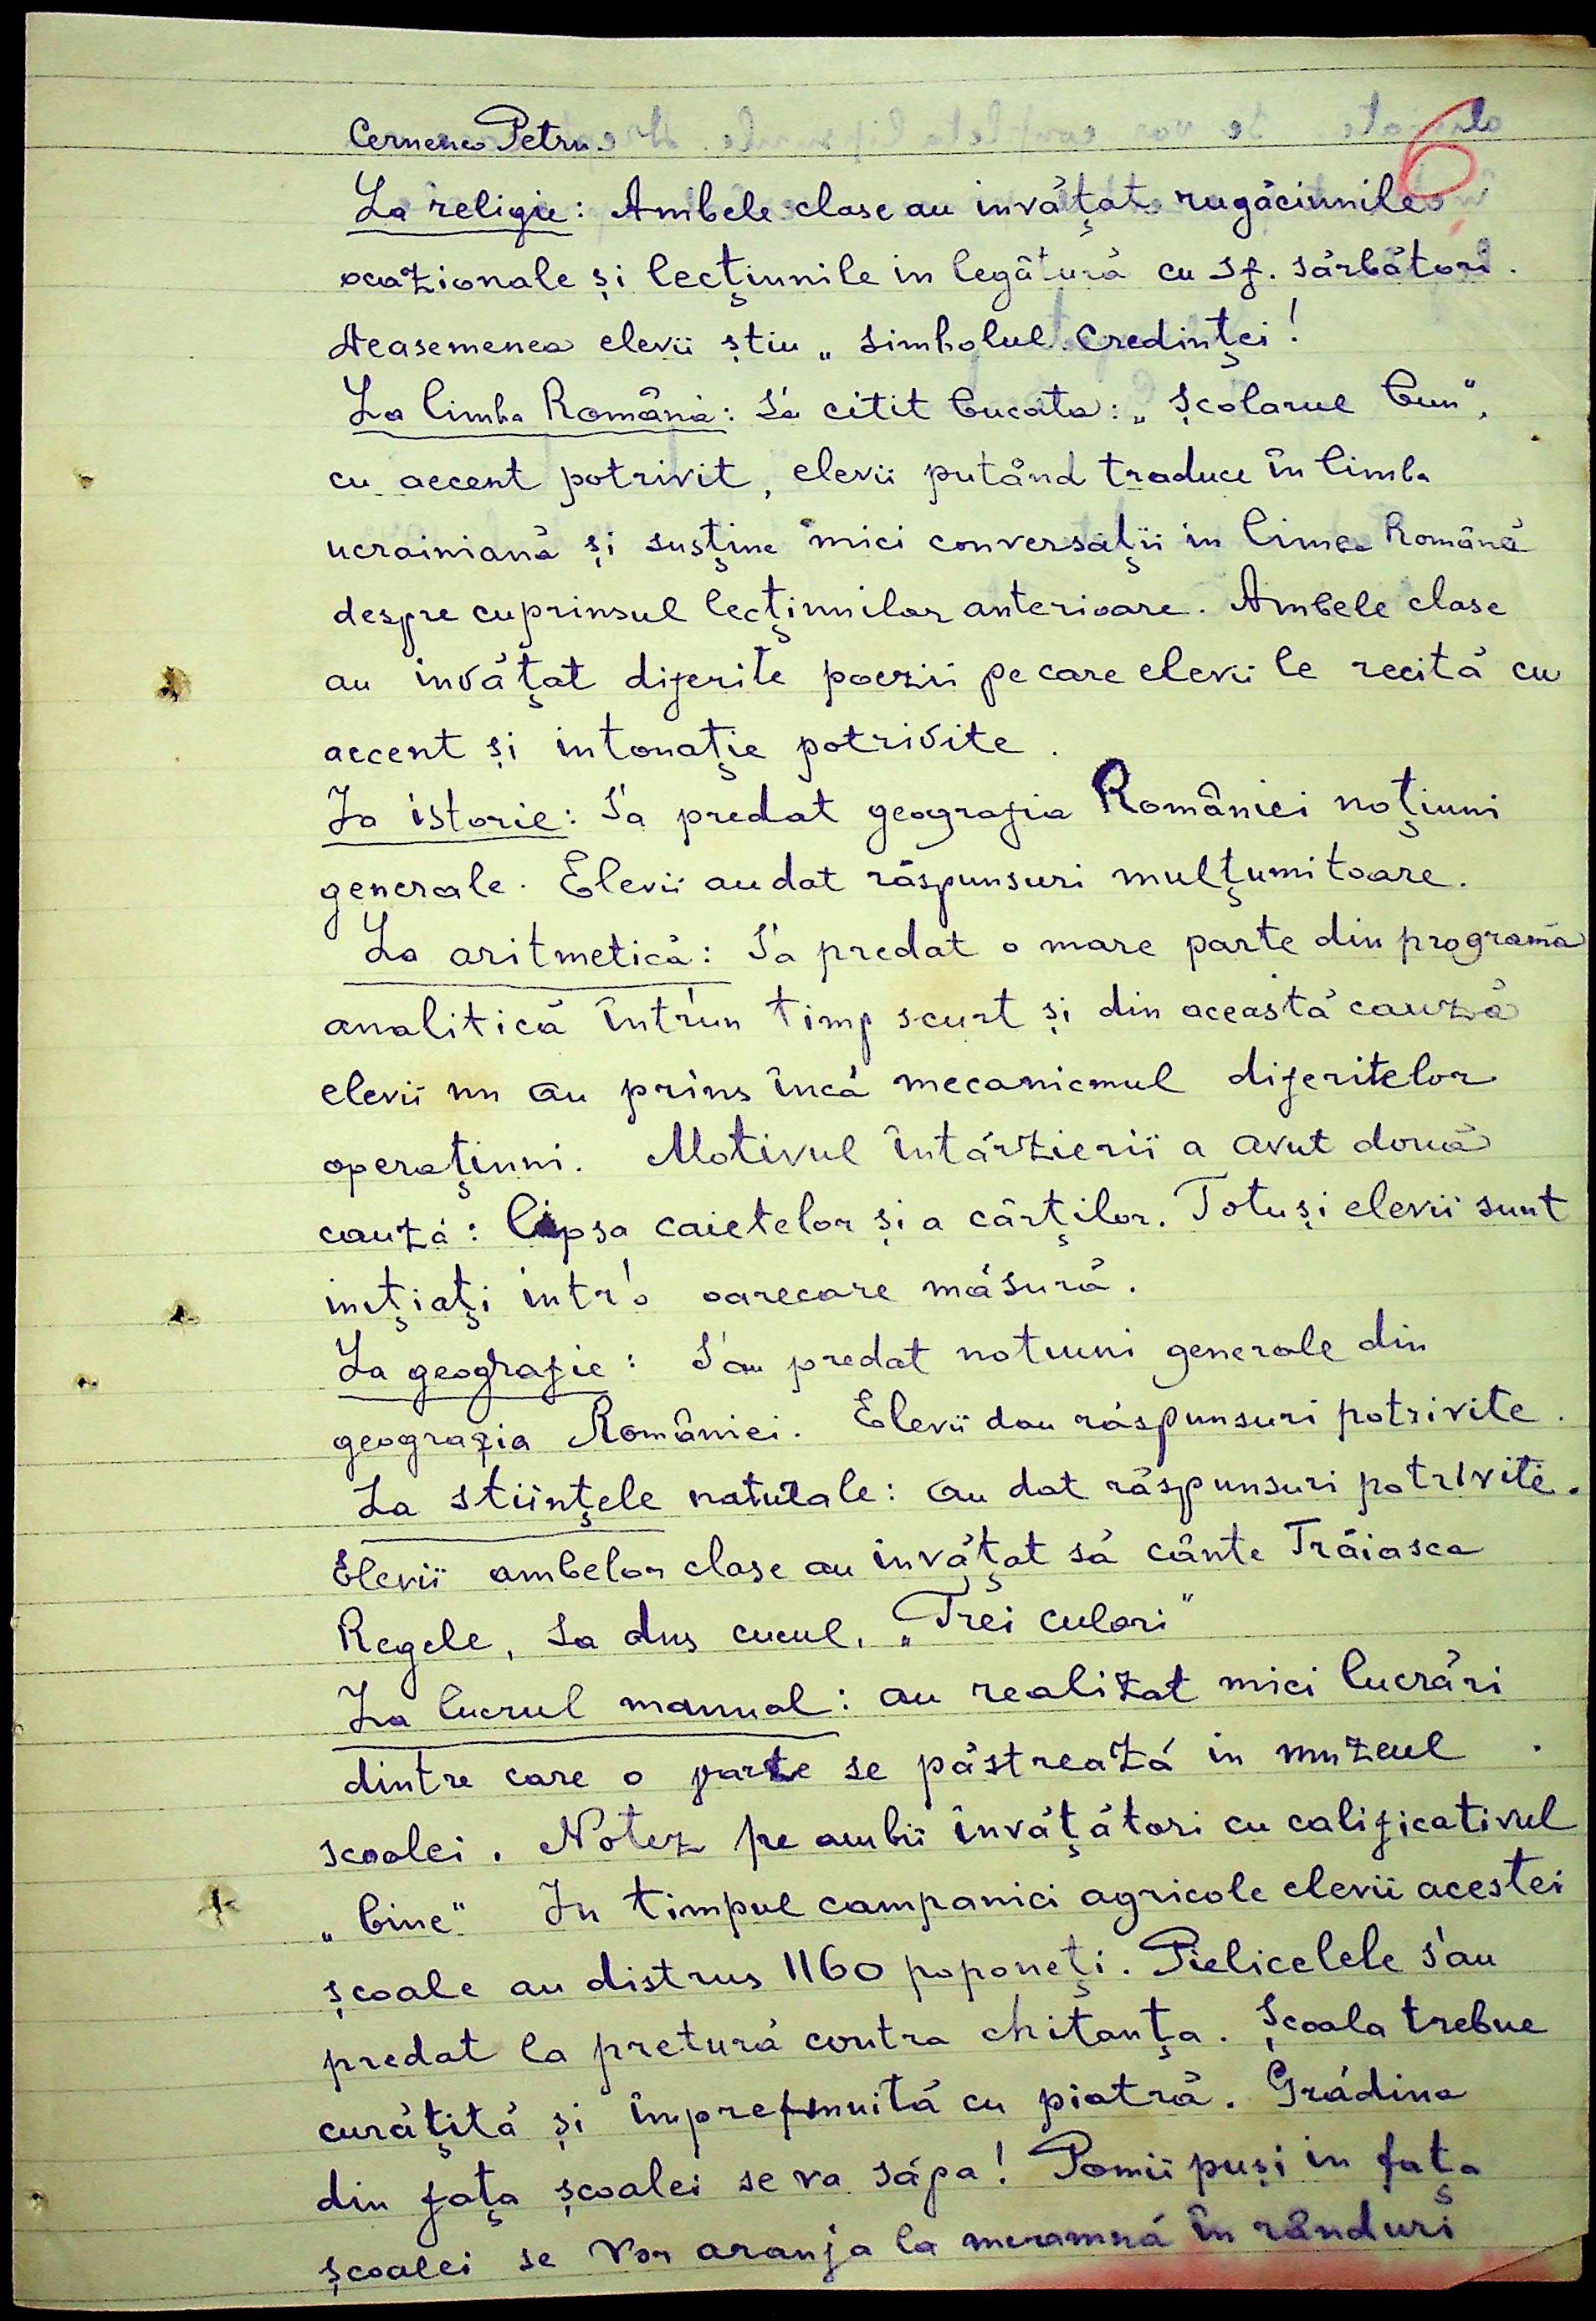 Cernenco Petru.
6
La religie: Ambele clase au invățat rugăciunile
ocazionale și lecțiunile in legătură cu sf. sărbători.
Deasemenea elevii știu „ Simbolul Credinței!
La limba Română: S'a citit bucata: „ Școlarul bun",
cu accent potrivit, elevii putând traduce în limba
ucrainiană și susține mici conversații in limba Română
despre cuprinsul lecțiunilor anterioare. Ambele clase
au invățat diferite poezii pe care elevii le recită cu
accent și intonație potrivite.
La istorie: S'a predat geografia României noțiuni
generale. Elevii au dat răspunsuri mulțumitoare.
La aritmetică: S'a predat o mare parte din programa
analitică într'un timp scurt și din această cauză
elevii nu au prins încă mecanicmul diferitelor
operațiuni. Motivul întârzierii a avut două
cauză: lipsa caietelor și a cărților. Totuși elevii sunt
inițiați intr'o oarecare măsură.
La geografie: S'au predat notiuni generale din
geografia României. Elevii dau răspunsuri potrivite.
La stiințele naturale: au dat răspunsuri potrivite.
Elevii ambelor clase au învățat să cânte Trăiasca
Regele, Sa dus cucul, „Trei culori"
La lucrul manual: au realizat mici lucrări
dintre care o parte se păstrează in muzeul
scoalei. Notez pe ambii învățători cu calificativul
„bine" In timpul campaniei agricole elevii acestei
școale au distrus 1160 poponeți. Pielicelele s'au
predat la pretură contra chitanța. Școala trebue
curățită și împrejmuită cu piatră. Grădina
din fața școalei se va săpa! Pomii puși in fața
școalei se vor aranja la în rânduri